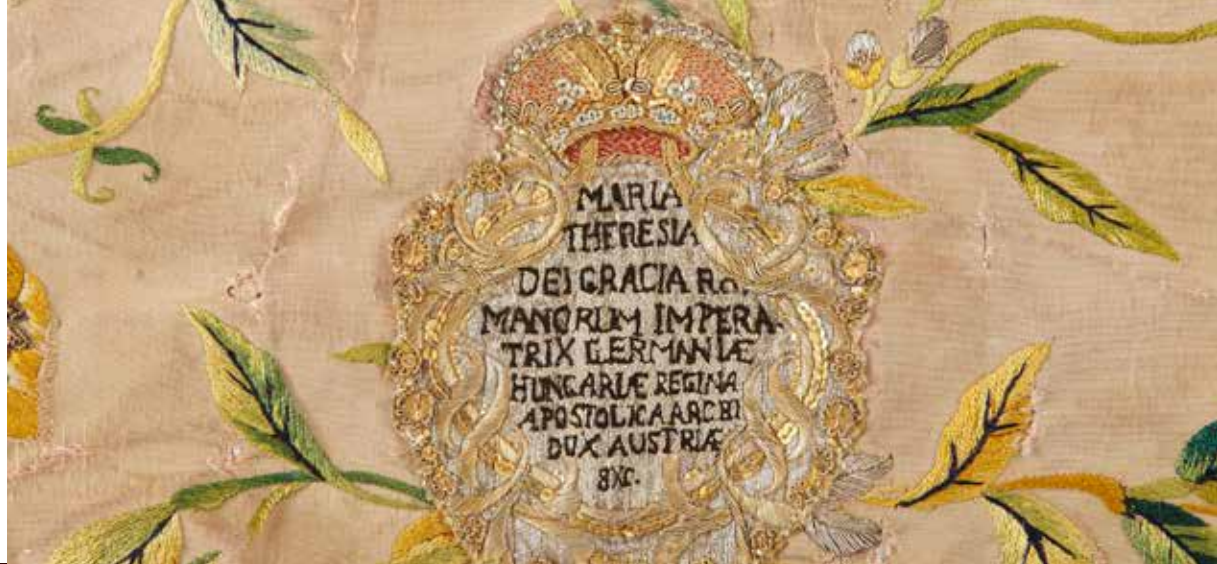 MARIA
THERESIA
DEI GRACIA RO.
MANORUM IMPERA.
TRIX GERMANIÆ
HUNGARIÆ REGINA
APOSTOLICA ARCHI
DUX AUSTRIÆ
&c.